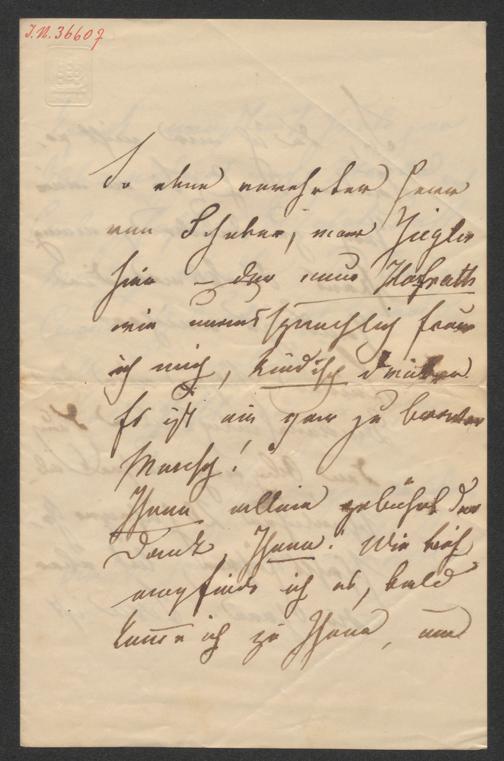 J.N. 36607
So eben verehrter Herr
von Schaber, war Ziegler
hier – der neue Hofrath
wie unaussprechlich freue
ich mich, kindisch drüber.
Es ist ein gar zu braver
Mensch!
Ihnen allein gebührt der
Dank, Ihnen! Wie tief
empfinde ich es, bald
komme ich zu Ihnen, und